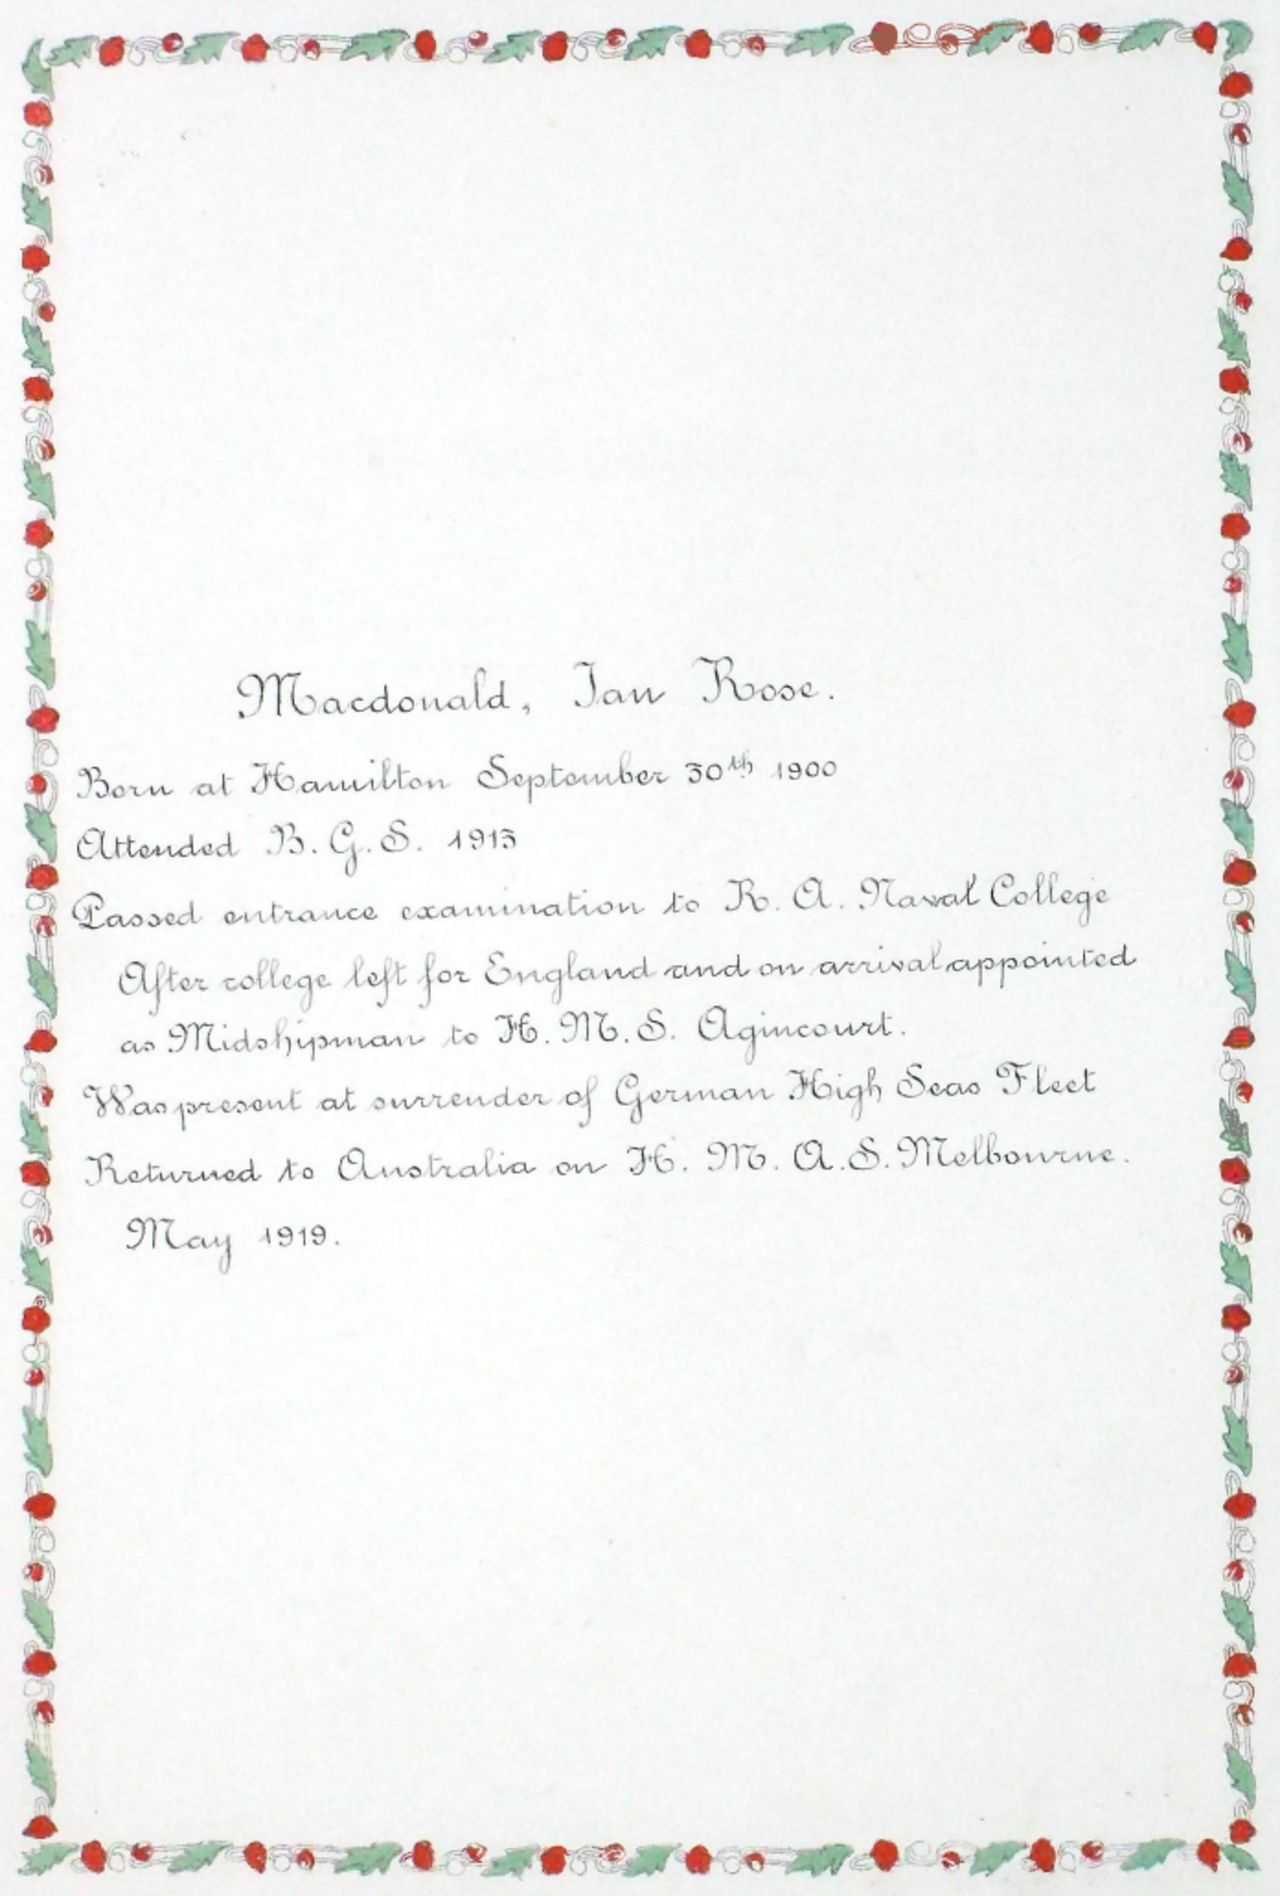 Macdonald, Ian Rose.
Born at Hamilton September 30th 1900
Attended B. G. S. 1913
Passed entrance examination to R. A. Naval College
After college left for England and on arrival appointed
as Midshipman to H. M. S. Agincourt.
Was present at surrender of German High Seas Fleet
Returned to Australia on H. M. A. S. Melbourne.
May 1919.